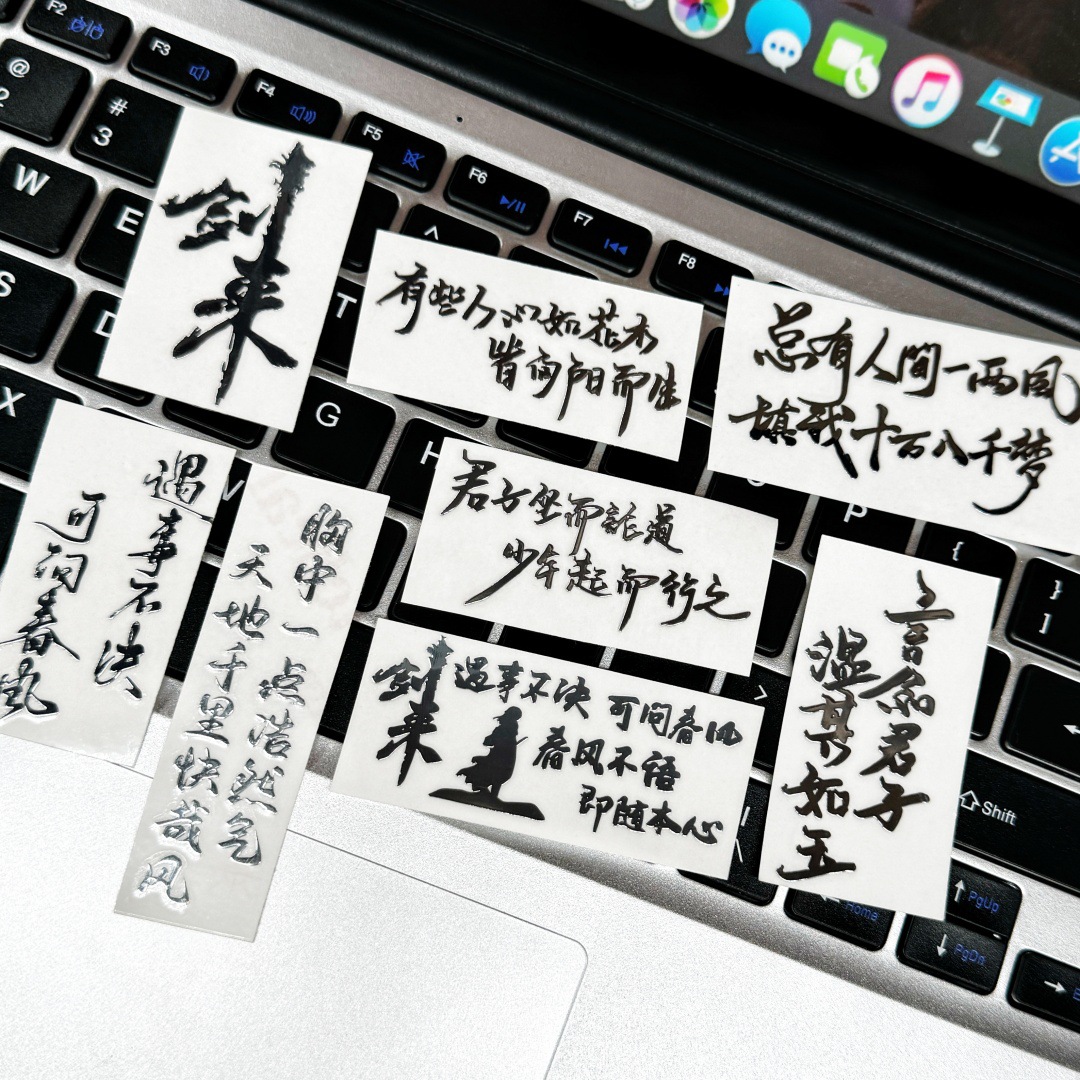 F2
F3
F4
F5
F6
F7
F8
@
2
#
3
W
E
S
D
X
T
G
H
V
P
{
}
]
Shift
Home
PgUp
PgDn
剑来
有些人心如花木
皆向阳而生
总有人间一两风
填我十万八千梦
遇事不决
可问春风
胸中一点浩然气
天地千里快哉风
君子坐而论道
少年起而行之
剑来
遇事不决 可问春风
春风不语
即随本心
言念君子
温其如玉